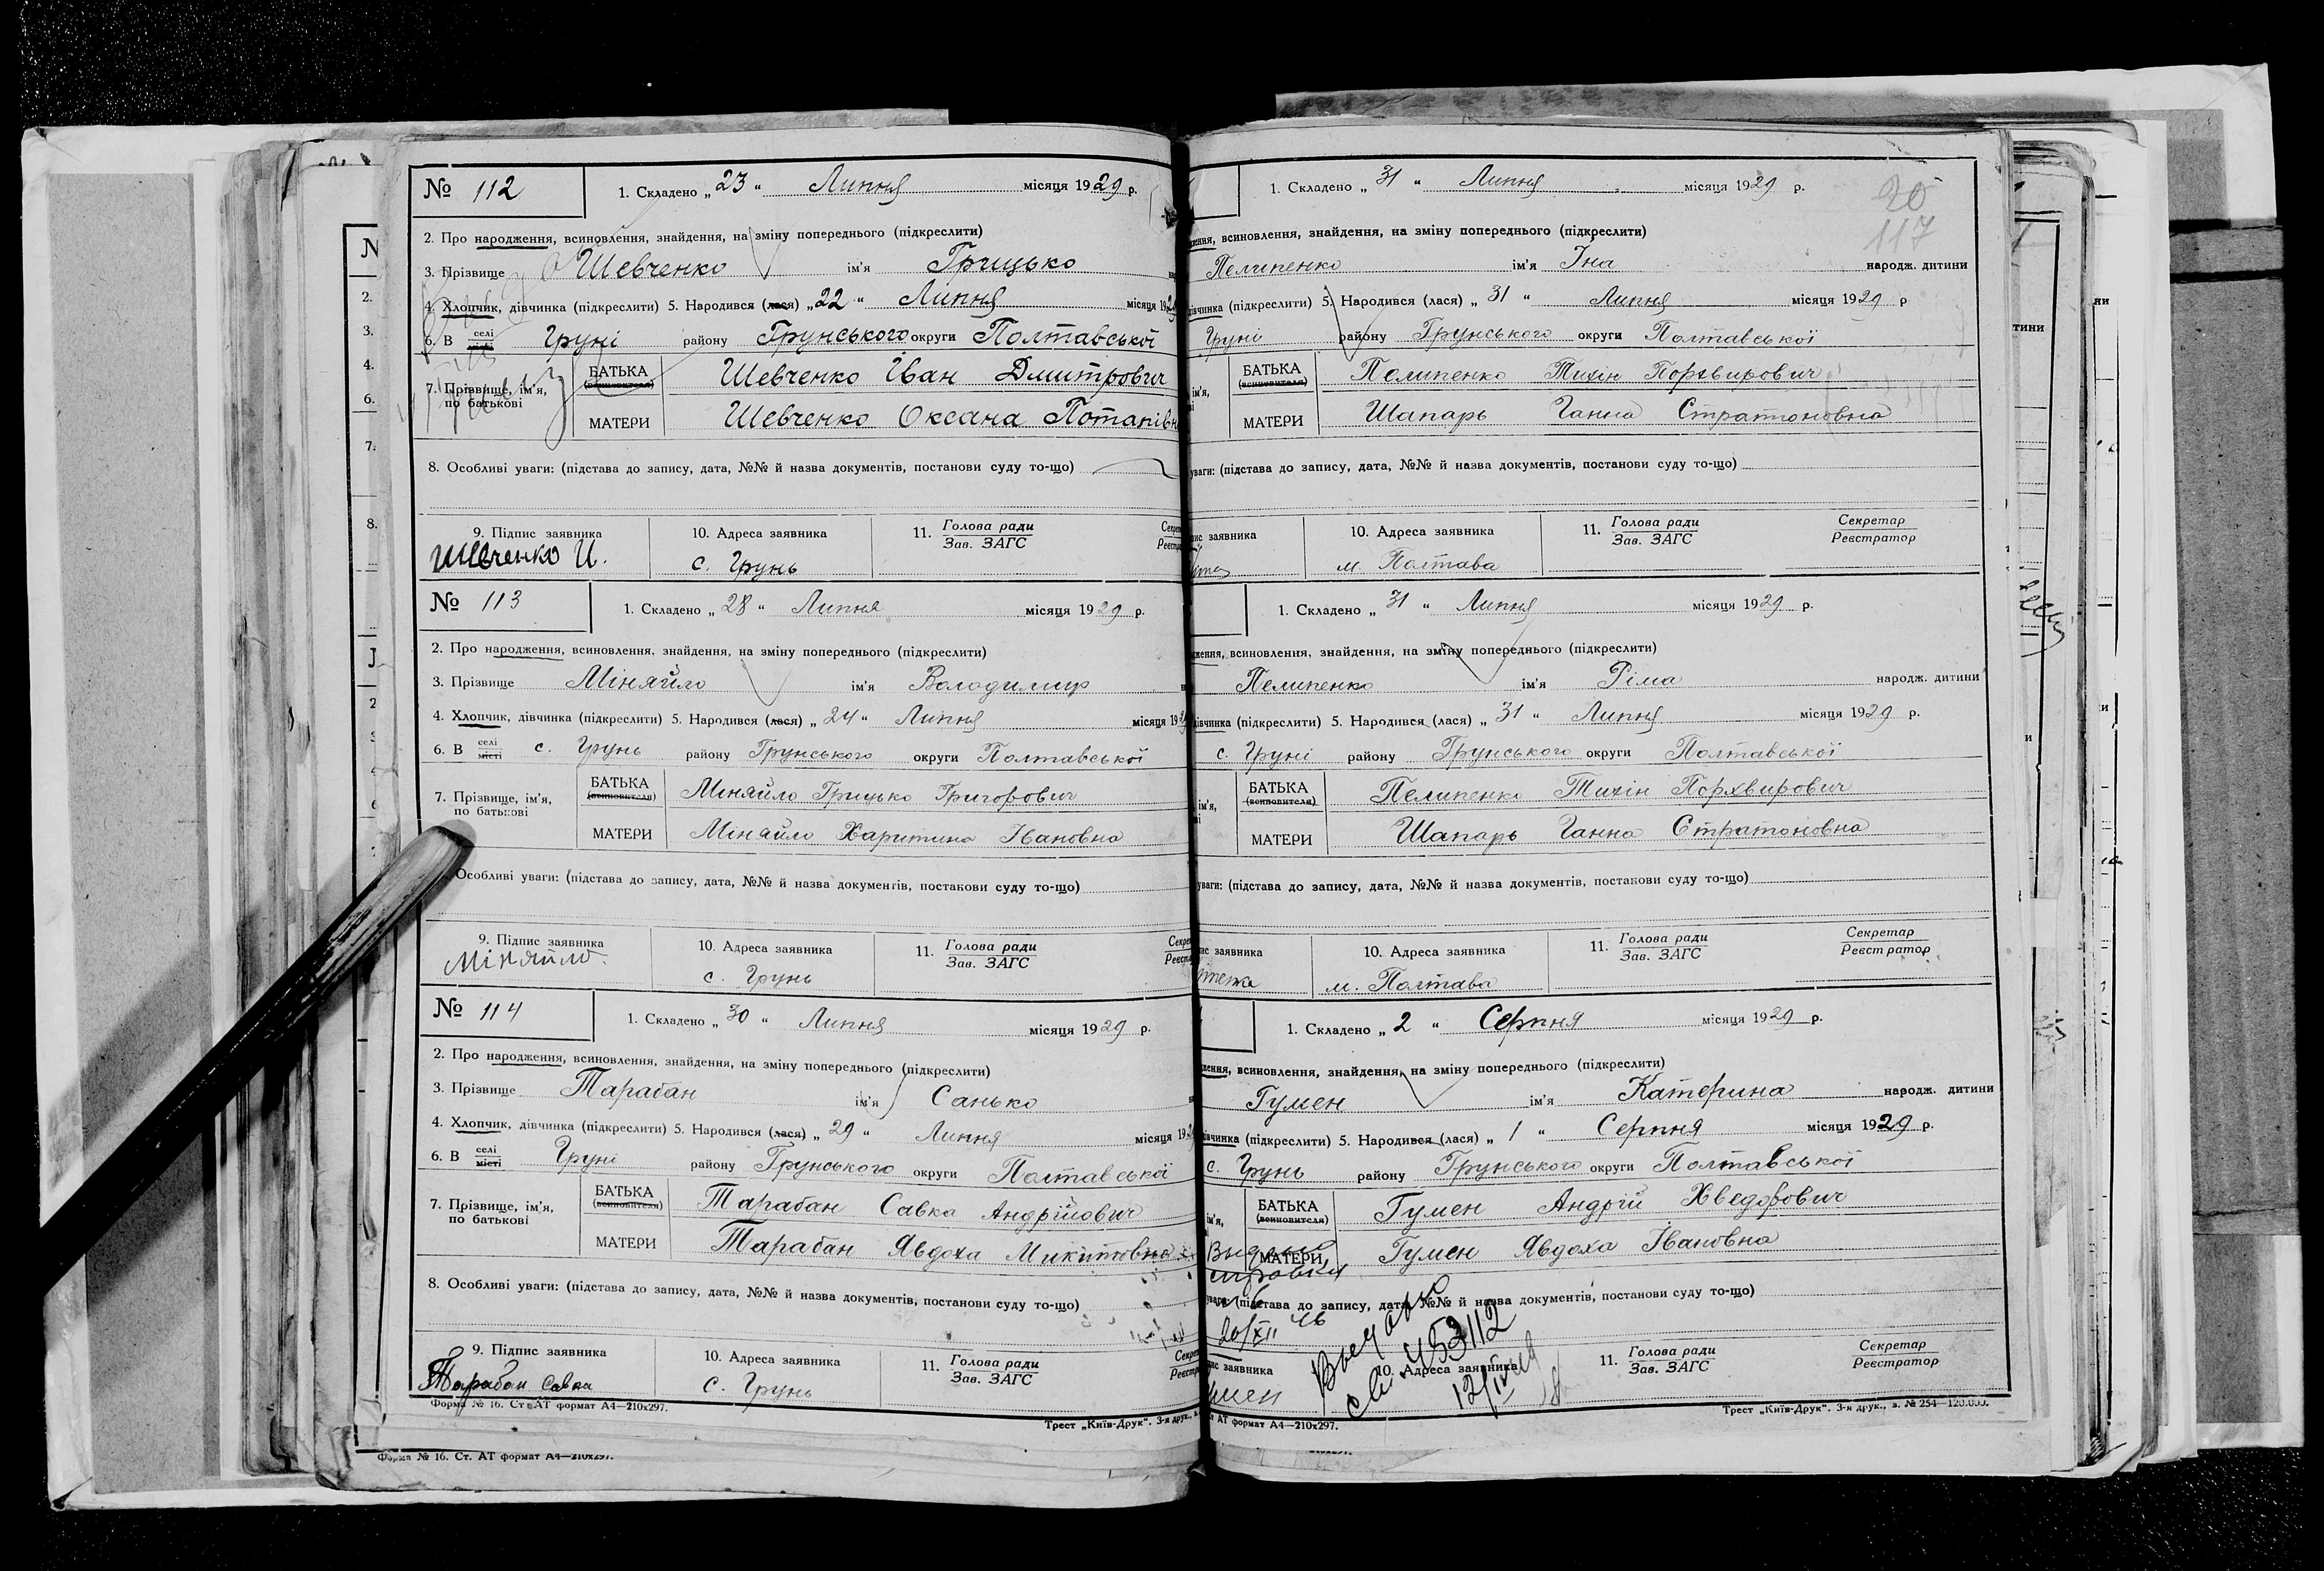 № 112
1. Складено „ 23 “ Липня місяця 1929 р.
2. Про народження, всиновлення, знайдення, на зміну попереднього (підкреслити)
3. Прізвище Шевченко ім'я Грицько
4. Хлопчик, дівчинка (підкреслити) 5. Народився (лася) „ 22 “ Липня місяця 192
6. В селі місті Груні району Грунського округи Полтавської
7. Прізвище, ім'я, по батькові
БАТЬКА (всиновителя) Шевченко Іван Дмитрович
МАТЕРИ Шевченко Оксана Потапівн
8. Особливі уваги: (підстава до запису, дата, №№ й назва документів, постанови суду то-що)
9. Підпис заявника
10. Адреса заявника
11. Голова ради
Зав. ЗАГС
Шевченко И.
с. Грунь
№ 113
1. Складено „ 28 “ Липня місяця 1929 р.
2. Про народження, всиновлення, знайдення, на зміну попереднього (підкреслити)
3. Прізвище Міняйло ім'я Володимир
4. Хлопчик, дівчинка (підкреслити) 5. Народився (лася) „ 24 “ Липня місяця 19
6. В селі місті с. Грунь району Грунського округи Полтавської
7. Прізвище, ім'я, по батькові
БАТЬКА (всиновителя) Міняйло Грицько Григорович
МАТЕРИ Міняйло Харитина Івановна
Особливі уваги: (підстава до запису, дата, №№ й назва документів, постанови суду то-що)
9. Підпис заявника
10. Адреса заявника
11. Голова ради
Зав. ЗАГС
Міняйло.
с. Грунь
№ 114
1. Складено „ 30 “ Липня місяця 1929 р.
2. Про народження, всиновлення, знайдення, на зміну попереднього (підкреслити)
3. Прізвище Тарабан ім'я Санько
4. Хлопчик, дівчинка (підкреслити) 5. Народився (лася) „ 29 “ Липня місяця 19
6. В селі місті Груні району Грунського округи Полтавської
7. Прізвище, ім'я, по батькові
БАТЬКА (всиновителя) Тарабан Савка Андрійович
МАТЕРИ Тарабан Явдоха Микитовна
8. Особливі уваги: (підстава до запису, дата, №№ й назва документів, постанови суду то-що)
9. Підпис заявника
10. Адреса заявника
11. Голова ради
Зав. ЗАГС
Тарабан Савка
с. Грунь
Форма № 16. Ст. АТ формат А4—210х297.
Трест „Київ-Друк“. 3-я друк.,
Форма № 16. Ст. АТ формат А4—210х297.
1. Складено „ 31 “ Липня місяця 1929 р.
20
117
всиновлення, знайдення, на зміну попереднього (підкреслити)
Пелипенко ім'я Іна народж. дитини
(підкреслити) 5. Народився (лася) „ 31 “ Липня місяця 1929 р
Груні району Грунського округи Полтавської
БАТЬКА (всиновителя) Пелипенко Тихін Порхвирович
МАТЕРИ Шапарь Ганна Стратоновна
уваги: (підстава до запису, дата, №№ й назва документів, постанови суду то-що)
заявника
10. Адреса заявника
11. Голова ради
Зав. ЗАГС
Секретар
Реєстратор
м. Полтава
1. Складено „ 31 “ Липня місяця 1929 р.
всиновлення, знайдення, на зміну попереднього (підкреслити)
Пелипенко ім'я Ріма народж. дитини
(підкреслити) 5. Народився (лася) „ 31 “ Липня місяця 1929 р.
с. Груні району Грунського округи Полтавської
БАТЬКА (всиновителя) Пелипенко Тихін Порхвирович
МАТЕРИ Шапарь Ганна Стратоновна
уваги: (підстава до запису, дата, №№ й назва документів, постанови суду то-що)
заявника
10. Адреса заявника
11. Голова ради
Зав. ЗАГС
Секретар
Реєстратор
м. Полтава
1. Складено „ 2 “ Серпня місяця 1929 р.
всиновлення, знайдення, на зміну попереднього (підкреслити)
Гумен ім'я Катерина народж. дитини
(підкреслити) 5. Народився (лася) „ 1 “ Серпня місяця 1929 р.
с. Грунь району Грунського округи Полтавської
БАТЬКА (всиновителя) Гумен Андрій Хведорович
МАТЕРИ Гумен Явдоха Івановна
(підстава до запису, дата, №№ й назва документів, постанови суду то-що)
20/XII 46
Выдано
453112
заявника
10. Адреса заявника
11. Голова ради
Зав. ЗАГС
Секретар
Реєстратор
АТ формат А4—210х297.
Трест „Київ-Друк“. 3-я друк., з. № 254—120.000.